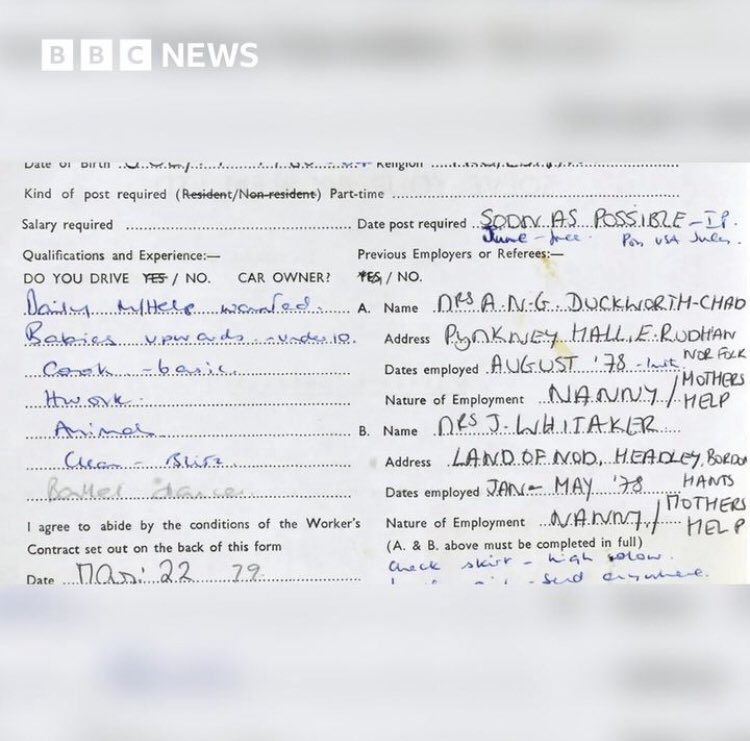 BBC NEWS
Date of Birth Religion
Kind of post required (Resident/Non-resident) Part-time
Salary required Date post required SOON AS POSSIBLE - IP.
June - free. Poss USA July.
Qualifications and Experience:— Previous Employers or Referees:—
DO YOU DRIVE YES / NO. CAR OWNER? YES / NO.
Daily M/Help wanted. A. Name MRS A.N.G. DUCKWORTH-CHAD
Babies upwards - under 10. Address PYNKNEY HALL, E. RUDHAM
NORFOLK
Cook - basic. Dates employed AUGUST '78
Hwork. Nature of Employment NANNY / MOTHERS HELP
Animals B. Name MRS J. WHITAKER
Clean - Address LAND OF NOD, HEADLEY, BORDON
HANTS
Ballet dancer Dates employed JAN - MAY '78
I agree to abide by the conditions of the Worker's Nature of Employment NANNY / MOTHERS HELP
Contract set out on the back of this form (A. & B. above must be completed in full)
check skirt - high
Date 22 79.
- send anywhere.